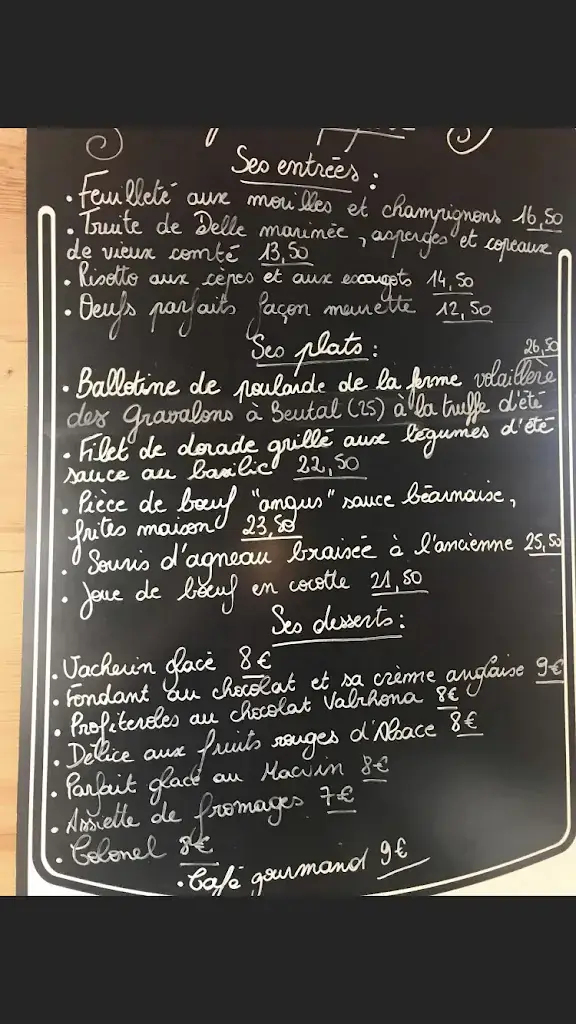 Ses entrées :
• Feuilleté aux morilles et champignons 16,50
• Truite de Delle marinée, asperges et copeaux
de vieux comté 13,50
• Risotto aux cèpes et aux escargots 14,50
• Oeufs parfaits façon meurette 12,50
Ses plats :
26,50
• Ballotine de poularde de la ferme volaillère
des Gravalons à Beutal (25) à la truffe d'été
• Filet de dorade grillé aux légumes d'été
sauce au basilic 22,50
• Pièce de bœuf "angus" sauce béarnaise,
frites maison 23,50
• Souris d'agneau braisée à l'ancienne 25,50
• Joue de bœuf en cocotte 21,50
Ses desserts :
• Vacherin glacé 8€
• Fondant au chocolat et sa crème anglaise 9€
• Profiteroles au chocolat Valrhona 8€
• Délice aux fruits rouges d'Alsace 8€
• Parfait glacé au Macvin 8€
• Assiette de fromages 7€
• Colonel 8€
• Café gourmand 9€